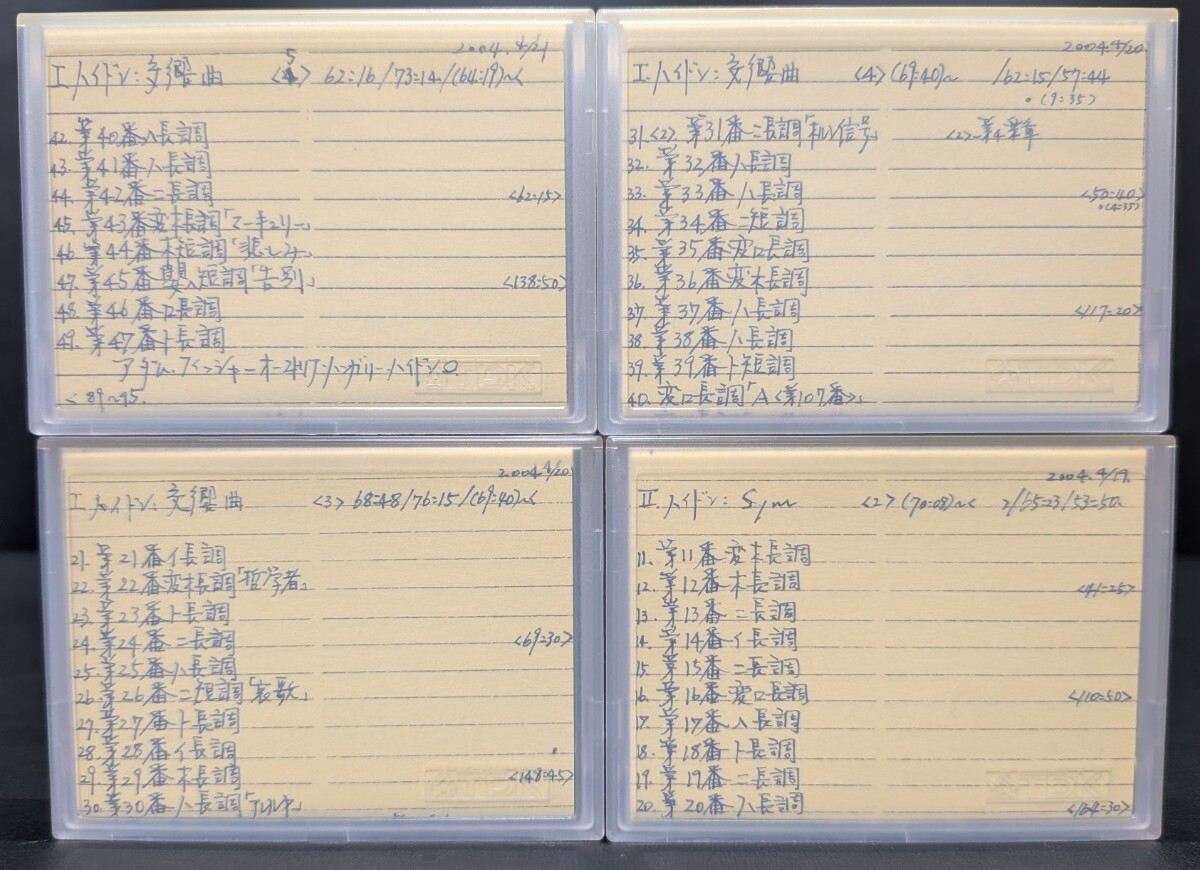 2004.4/21
I. ハイドン:交響曲 <5> 62=16/73=14/(64=19)~<
42. 第40番ヘ長調
43. 第41番ハ長調
44. 第42番ニ長調 <62=15>
45. 第43番変ホ長調「マーキュリー」
46. 第44番ホ短調「悲しみ」
47. 第45番嬰ヘ短調「告別」 <138=50>
48. 第46番ロ長調
49. 第47番ト長調
アダム・フィッシャー オーストリア・ハンガリー・ハイドンO.
< 89~95.
TDK
2004.4/20.
I. ハイドン:交響曲 <4> (69=40)~ /62=15/57=44
•(9=35)
31.<2> 第31番ニ長調「ホルン信号」 <2>~第4楽章
32. 第32番ハ長調
33. 第33番ハ長調 <50=40>
•(4=35)
34. 第34番ニ短調
35. 第35番変ロ長調
36. 第36番変ホ長調
37. 第37番ハ長調 <117=20>
38. 第38番ハ長調
39. 第39番ト短調
40. 変ロ長調「A<第107番>」
TDK
2004.4/20.
I. ハイドン:交響曲 <3> 68=48/76=15/(69=40)~<
21. 第21番イ長調
22. 第22番変ホ長調「哲学者」
23. 第23番ト長調
24. 第24番ニ長調 <69=30>
25. 第25番ハ長調
26. 第26番ニ短調「哀歌」
27. 第27番ト長調
28. 第28番イ長調
29. 第29番ホ長調 <148=45>
30. 第30番ハ長調「アレルヤ」
TDK
2004.4/19.
II. ハイドン: Sym <2> (70=08)~< 2/65=23/53=50.
11. 第11番変ホ長調
12. 第12番ホ長調 <41=25>
13. 第13番ニ長調
14. 第14番イ長調
15. 第15番ニ長調
16. 第16番変ロ長調 <110=50>
17. 第17番ヘ長調
18. 第18番ト長調
19. 第19番ニ長調
20. 第20番ハ長調 <164=30>
TDK